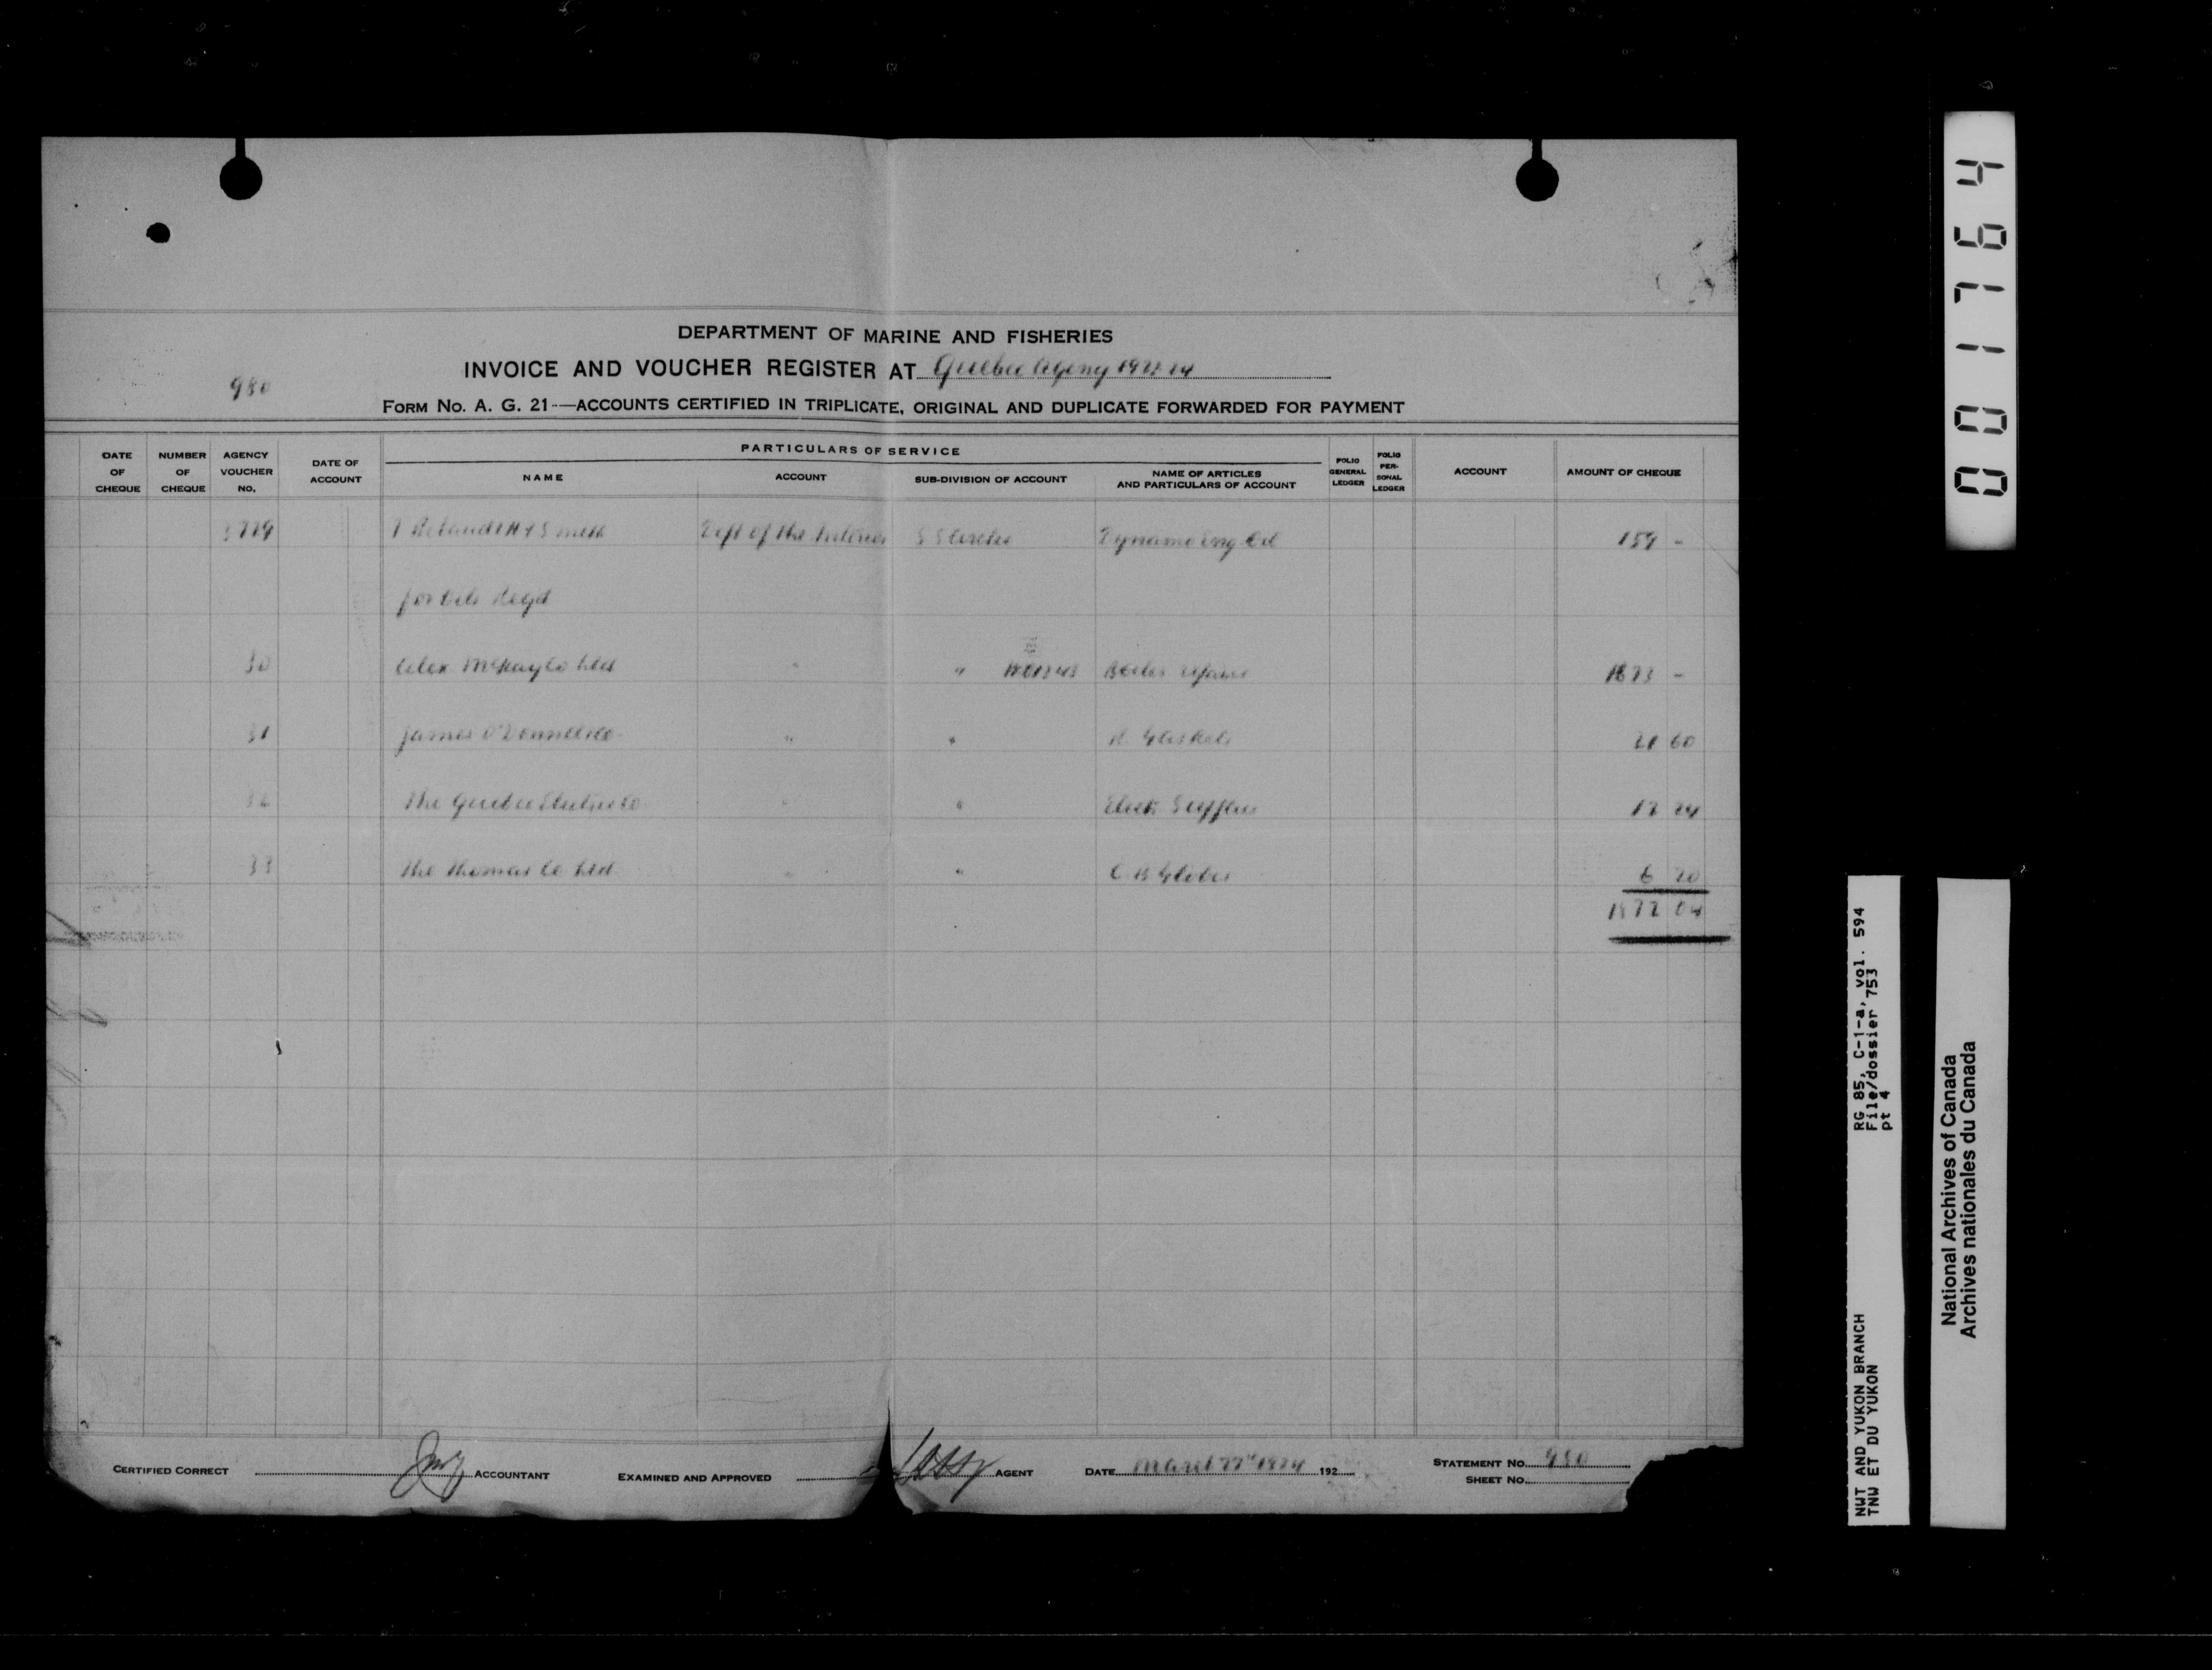 DEPARTMENT OF MARINE AND FISHERIES
INVOICE AND VOUCHER REGISTER AT Quebec Agency 1923 24
980
FORM NO. A. G. 21—ACCOUNTS CERTIFIED IN TRIPLICATE, ORIGINAL AND DUPLICATE FORWARDED FOR PAYMENT
PARTICULARS OF SERVICE
DATE OF CHEQUE NUMBER OF CHEQUE AGENCY VOUCHER NO. DATE OF ACCOUNT NAME ACCOUNT SUB-DIVISION OF ACCOUNT NAME OF ARTICLES AND PARTICULARS OF ACCOUNT FOLIO GENERAL LEDGER FOLIO PERSONAL LEDGER ACCOUNT AMOUNT OF CHEQUE
Smith Dept of the Interior S S Dynamo Eng Oil 159 -
Regd
30 Alex McKay Co Ltd " " Boiler repairs -
31 James O'Donnell Co " " Gaskets 21 60
32 The Quebec Electric Co " " Elect. Supplies 12 24
33 The Thomas Co Ltd " " Globes 6 20
72 04
CERTIFIED CORRECT ACCOUNTANT EXAMINED AND APPROVED AGENT DATE March 22nd 1924 192 STATEMENT NO. 980
SHEET NO.
001764
RG 85, C-1-a, vol. 594
File/dossier 753
pt 4
NWT AND YUKON BRANCH
TNW ET DU YUKON
National Archives of Canada
Archives nationales du Canada